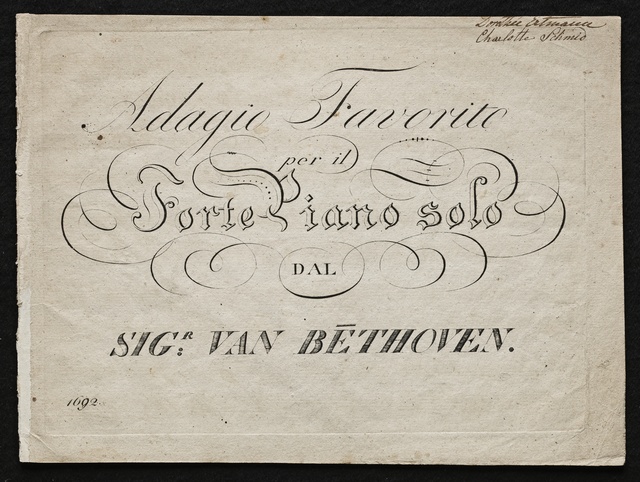 Dorothee Ertmann
Charlotte Schmid
Adagio Favorito
per il
Forte Piano solo
DAL
SIG.R VAN BĒTHOVEN.
1692